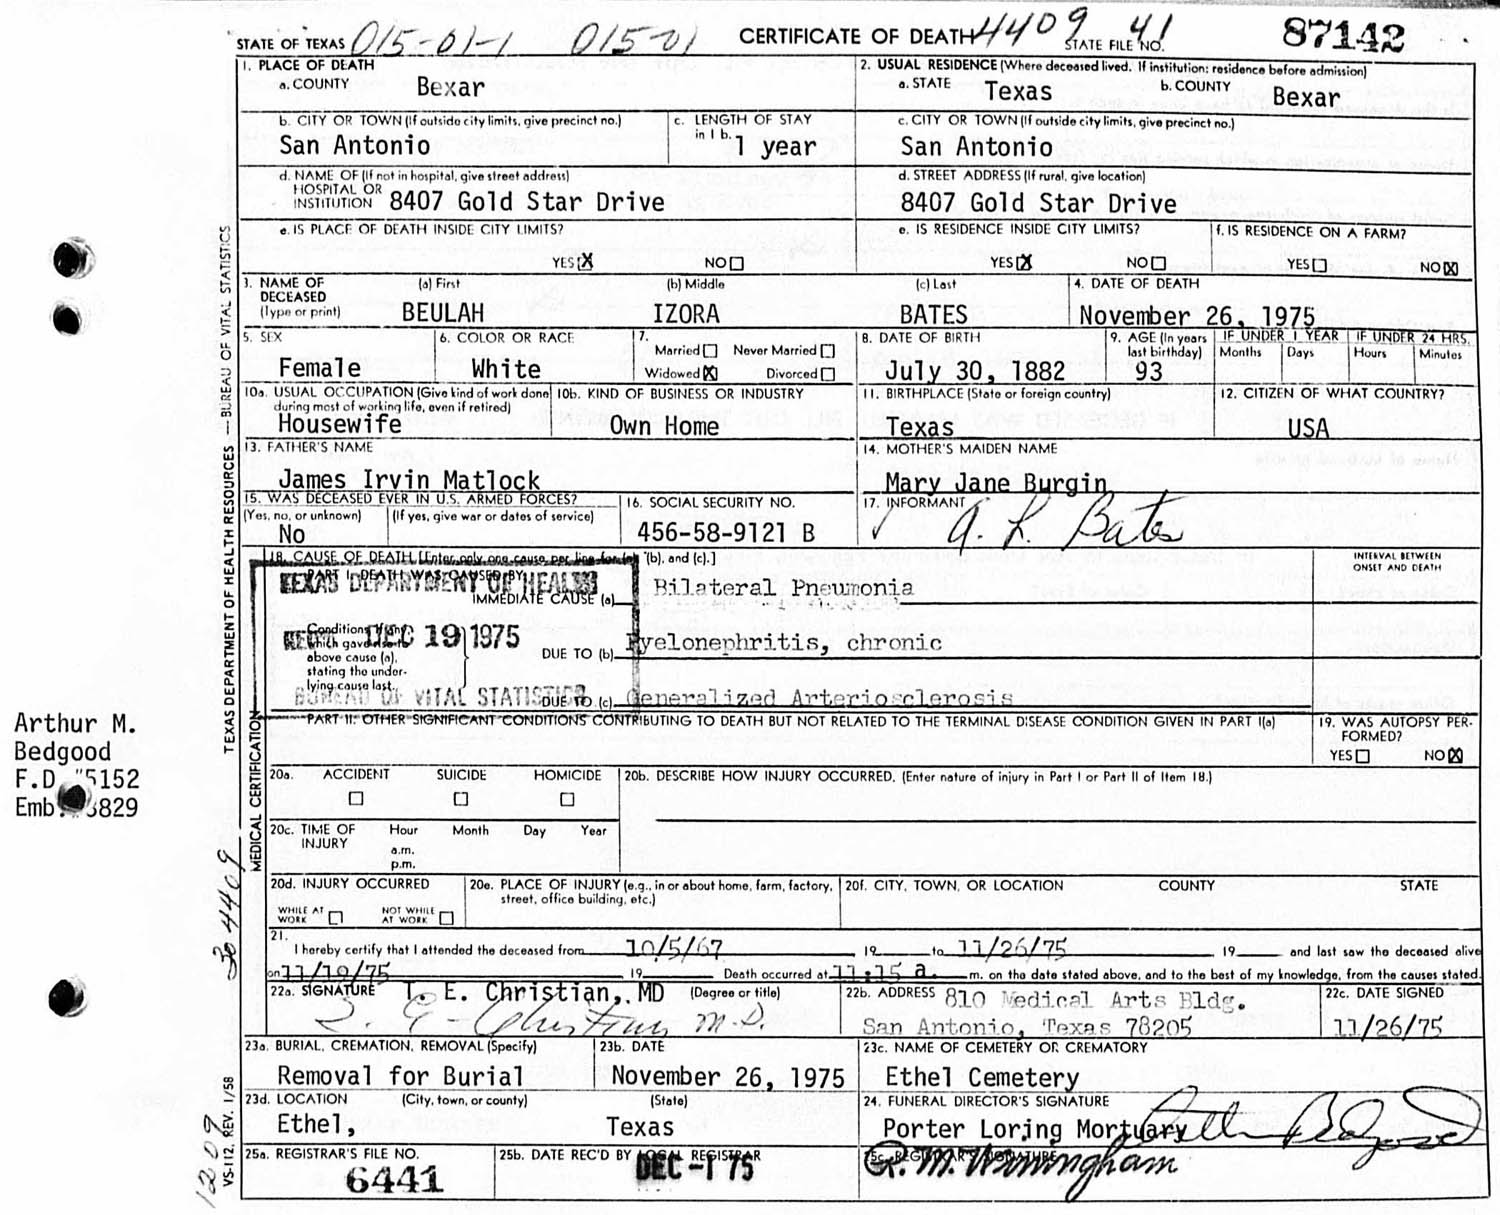 STATE OF TEXAS 015-01-1 015-01 CERTIFICATE OF DEATH 4409 41 STATE FILE NO. 87142
1. PLACE OF DEATH
a. COUNTY Bexar
2. USUAL RESIDENCE (Where deceased lived. If institution: residence before admission)
a. STATE Texas b. COUNTY Bexar
b. CITY OR TOWN (If outside city limits, give precinct no.)
San Antonio
c. LENGTH OF STAY in 1 b.
1 year
c. CITY OR TOWN (If outside city limits, give precinct no.)
San Antonio
d. NAME OF (If not in hospital, give street address)
HOSPITAL OR
INSTITUTION 8407 Gold Star Drive
d. STREET ADDRESS (If rural, give location)
8407 Gold Star Drive
e. IS PLACE OF DEATH INSIDE CITY LIMITS?
YES X NO
e. IS RESIDENCE INSIDE CITY LIMITS?
YES X NO
f. IS RESIDENCE ON A FARM?
YES NO X
3. NAME OF DECEASED (Type or print)
(a) First (b) Middle (c) Last
BEULAH IZORA BATES
4. DATE OF DEATH
November 26, 1975
5. SEX
Female
6. COLOR OR RACE
White
7.
Married Never Married
Widowed X Divorced
8. DATE OF BIRTH
July 30, 1882
9. AGE (In years last birthday)
93
IF UNDER 1 YEAR IF UNDER 24 HRS.
Months Days Hours Minutes
10a. USUAL OCCUPATION (Give kind of work done during most of working life, even if retired)
Housewife
10b. KIND OF BUSINESS OR INDUSTRY
Own Home
11. BIRTHPLACE (State or foreign country)
Texas
12. CITIZEN OF WHAT COUNTRY?
USA
13. FATHER'S NAME
James Irvin Matlock
14. MOTHER'S MAIDEN NAME
Mary Jane Burgin
15. WAS DECEASED EVER IN U.S. ARMED FORCES?
(Yes, no, or unknown) (If yes, give war or dates of service)
No
16. SOCIAL SECURITY NO.
456-58-9121 B
17. INFORMANT
A. L. Bates
18. CAUSE OF DEATH [Enter only one cause per line for (a), (b), and (c).]
INTERVAL BETWEEN ONSET AND DEATH
PART I. DEATH WAS CAUSED BY:
TEXAS DEPARTMENT OF HEALTH
IMMEDIATE CAUSE (a) Bilateral Pneumonia
REC'D DEC 19 1975
Conditions, if any, which gave rise to above cause (a), stating the underlying cause last.
DUE TO (b) Pyelonephritis, chronic
BUREAU OF VITAL STATISTICS
DUE TO (c) Generalized Arteriosclerosis
PART II. OTHER SIGNIFICANT CONDITIONS CONTRIBUTING TO DEATH BUT NOT RELATED TO THE TERMINAL DISEASE CONDITION GIVEN IN PART I(a)
19. WAS AUTOPSY PERFORMED?
YES NO X
20a. ACCIDENT SUICIDE HOMICIDE
20b. DESCRIBE HOW INJURY OCCURRED. (Enter nature of injury in Part I or Part II of Item 18.)
20c. TIME OF INJURY
Hour Month Day Year
a.m.
p.m.
20d. INJURY OCCURRED
WHILE AT WORK NOT WHILE AT WORK
20e. PLACE OF INJURY (e.g., in or about home, farm, factory, street, office building, etc.)
20f. CITY, TOWN, OR LOCATION COUNTY STATE
21.
I hereby certify that I attended the deceased from 10/5/67 19 to 11/26/75 19 and last saw the deceased alive
on 11/19/75 19 Death occurred at 11:15 a. m. on the date stated above, and to the best of my knowledge, from the causes stated.
22a. SIGNATURE T. E. Christian, MD (Degree or title)
T. E. Christian M.D.
22b. ADDRESS 810 Medical Arts Bldg.
San Antonio, Texas 78205
22c. DATE SIGNED
11/26/75
23a. BURIAL, CREMATION, REMOVAL (Specify)
Removal for Burial
23b. DATE
November 26, 1975
23c. NAME OF CEMETERY OR CREMATORY
Ethel Cemetery
23d. LOCATION (City, town, or county) (State)
Ethel, Texas
24. FUNERAL DIRECTOR'S SIGNATURE
Porter Loring Mortuary
25a. REGISTRAR'S FILE NO.
6441
25b. DATE REC'D BY LOCAL REGISTRAR
DEC -1 75
25c. REGISTRAR'S SIGNATURE
Arthur M.
Bedgood
F.D. 5152
Emb. 829
TEXAS DEPARTMENT OF HEALTH RESOURCES — BUREAU OF VITAL STATISTICS
MEDICAL CERTIFICATION
VS-112, REV. 1/58
304409
1209